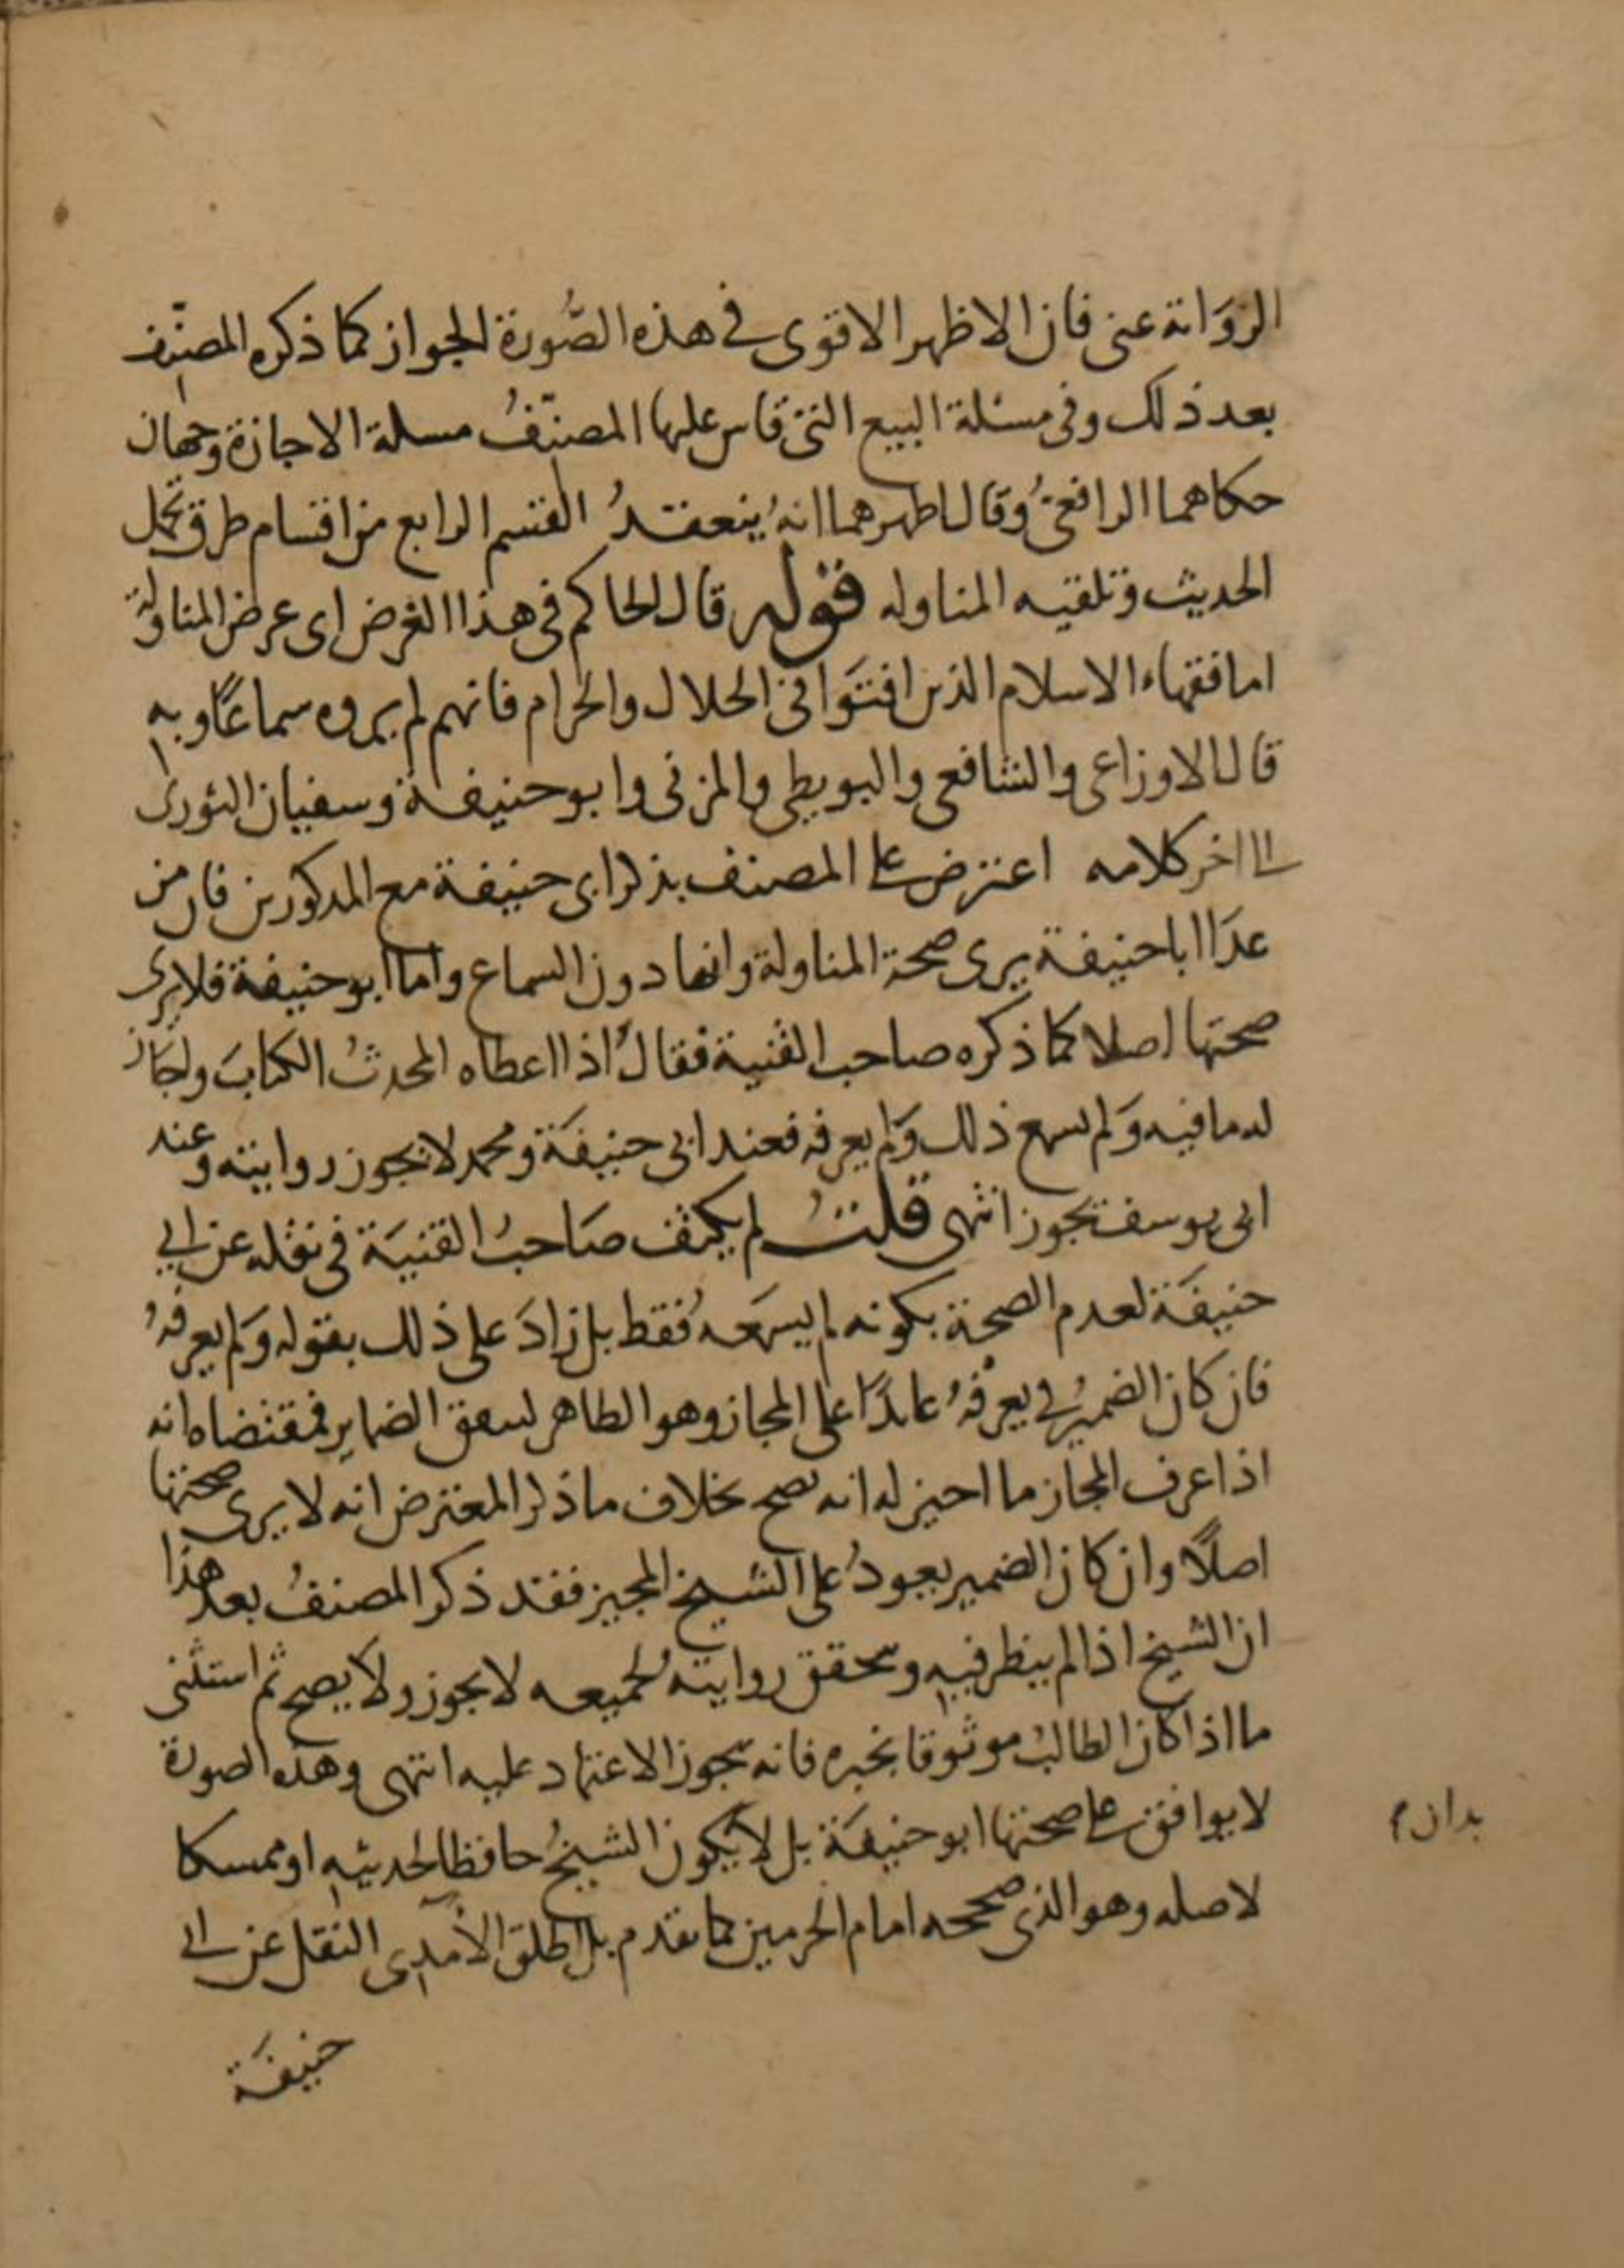 الرواية عنى فان الاظهر الاقوى في هذه الصُّورة الجواز كما ذكره المصنّف
بعد ذلك وفى مسئلة البيع التى قاس عليها المصنّفُ مسلة الاجازة وجهان
حكاهما الرافعىُّ وقال اظهرهما انهُ ينعقدُ القسم الرابع من اقسام طرق تحمل
الحديث وتلقيه المناوله قوله قال الحاكم فى هذا الغرض اى عرض المناولة
اما فقهاء الاسلام الذين افتَوا فى الحلال والحرام فانهم لم يروه سماعًا وبه
قال الاوزاعى والشافعى والبويطى والمزنى وابو حنيفة وسفيان الثورى
الى اخر كلامه اعترض على المصنف بذكر ابى حنيفة مع المذكورين فان من
عدَا ابا حنيفة يرى صحة المناولة وانها دون السماع واما ابو حنيفة فلا يرى
صحتها اصلا كما ذكره صاحب القنية فقال اذا اعطاه المحدثُ الكتابَ واجَاز
له ما فيه وَلم يسمع ذلك وَلم يعرفه فعند ابى حنيفَة ومحمد لا يجوز روايته وعند
ابى يوسف يجوز انتهى قلتُ لم يكتف صَاحبُ القنيَة فى نقله عن ابي
حنيفَة لعدم الصحة بكونه لم يسمَعهُ فقط بل زادَ على ذلك بقوله وَلم يعرفهُ
فان كان الضميرُ في يعرفهُ عائدًا على المجاز وهو الظاهر لتتفق الضماير فمقتضاه انه
اذا عرف المجاز ما اجيز له انه يصح بخلاف ما ذكر المعترض انه لا يرى صحتها
اصلًا وان كان الضمير يعودُ على الشيخ المجيز فقد ذكر المصنفُ بعد هذا
ان الشيخ اذا لم ينظر فيه ويتحقق روايتهُ لجميعه لا يجوز ولا يصح ثم استثنى
ما اذا كان الطالبُ موثوقا بخبره فانه يجوز الاعتماد عليه انتهى وهذه الصورة
لا يوافق على صحتها ابو حنيفَة بل لا يكون الشيخُ حافظا لحديثه او ممسكا
بد ان م
لاصله وهو الذى صححه امام الحرمين كما تقدم بل اطلق الآمدى النقل عن ابى
حنيفَة